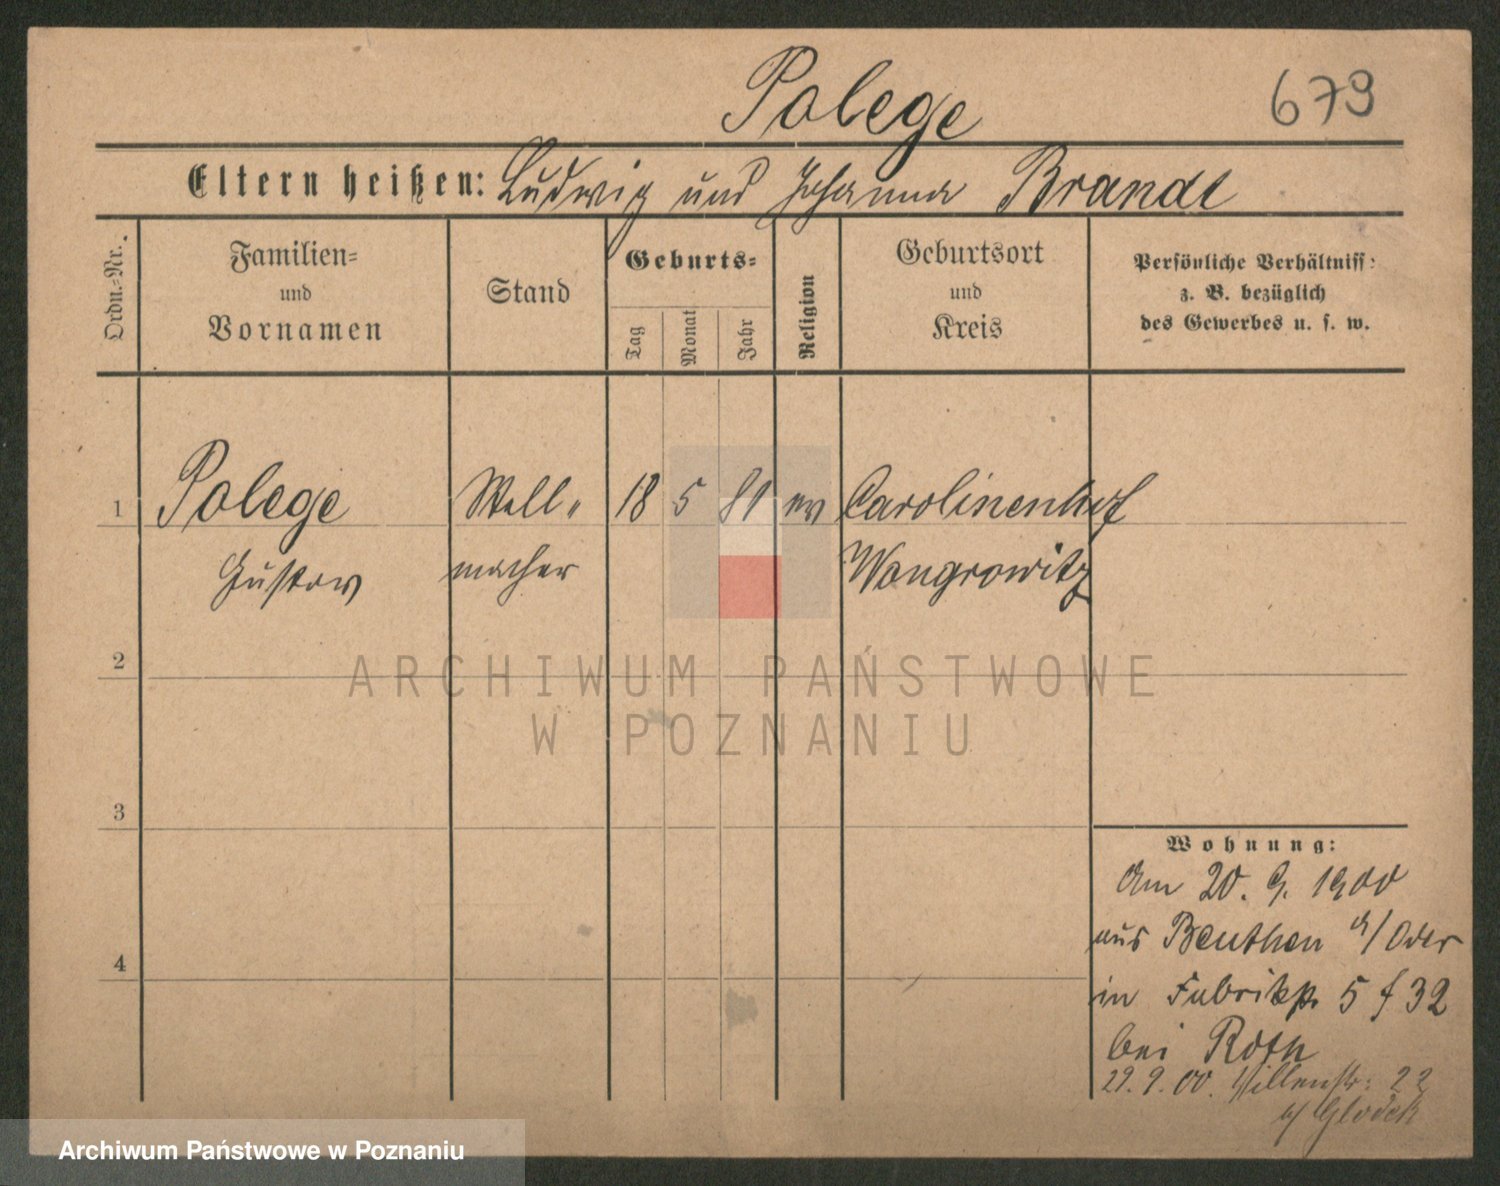 Polege
679
Eltern heißen: Ludwig und Johanna Brandt
Ordn.-Nr.
Familien-
und
Vornamen
Stand
Geburts-
Tag
Monat
Jahr
Religion
Geburtsort
und
Kreis
Persönliche Verhältniss:
z. B. bezüglich
des Gewerbes u. s. w.
1 Polege Stell- 18 5 81 ev Carolinenhof
Gustav macher Wongrowitz
2
3
4
ARCHIWUM PAŃSTWOWE
W POZNANIU
Wohnung:
Am 20. 9. 1900
aus Beuthen a/Oder
in Fabrikstr. 5 f 32
bei Roth
29.9.00. 22
Glodek
Archiwum Państwowe w Poznaniu